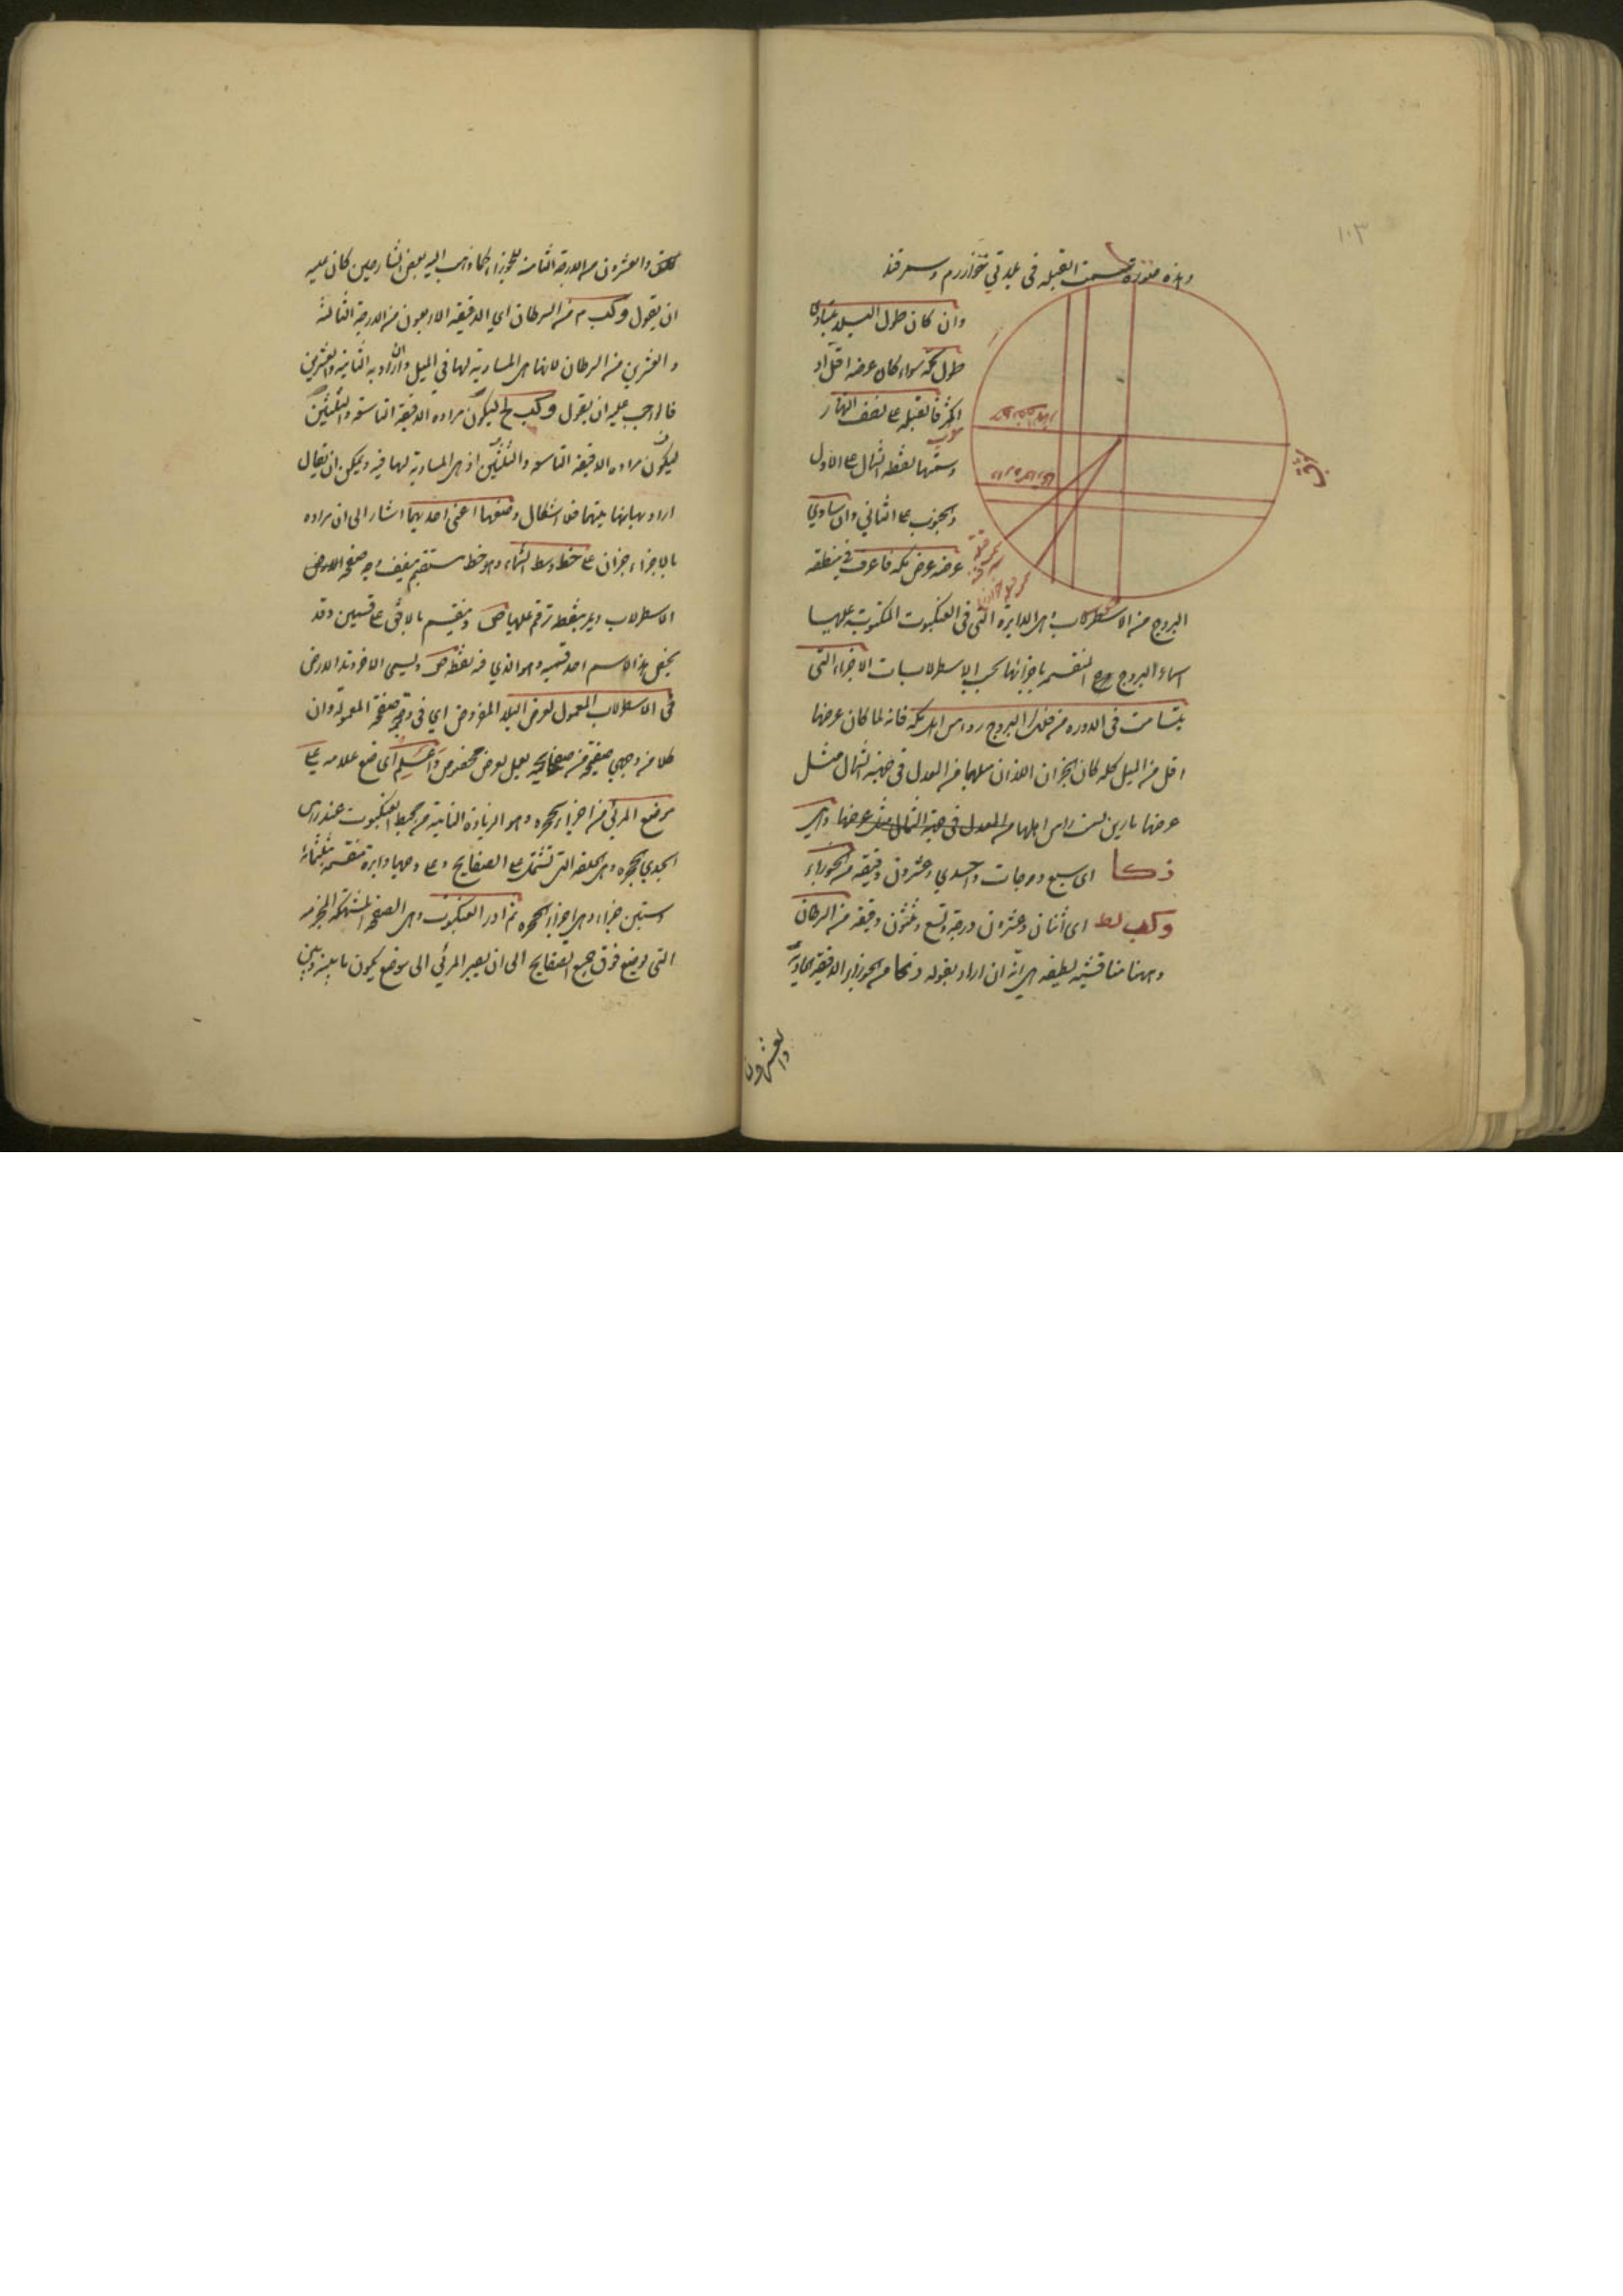 ١٠٣
وهذه صورة سمت القبلة في بلدتي خوارزم وسمرقند
وان كان طول البلد يساوي
طول مكة سواء كان عرضه اقل او
اكثر فالقبلة على نصف النهار
وسمتها نقطة الشمال على الاول
والجنوب على الثاني وان ساوى
عرضه عرض مكة فاعرف في منطقة
البروج من الاسطرلاب وهي الدايرة التي في العنكبوت المكتوبة عليها
اسماء البروج المنقسمة باجزائها بحسب الاسطرلابات الاجزاء التي
يتسامت في الدورة من فلك البروج رءوس اهل مكة فانه لما كان عرضها
اقل من الميل كله كان الجزءان اللذان ميلهما من المعدل في جهة الشمال مثل
عرضها مارين بسمت راس اهلها وهي
ز كا اي سبع درجات واحدي وعشرون دقيقة من الجوزاء
وكب لط اي اثنان وعشرون درجة وتسع وثلثون دقيقة من السرطان
وههنا مناقشة لطيفة هي انه ان اراد بقوله ز كا من الجوزاء الدقيقة الحادية
والعشرون
شرق
جنوب
والعشرون من الدرجة الثامنة للجوزاء كما ذهب اليه بعض الشارحين كان عليه
ان يقول وكب م من السرطان اي الدقيقة الاربعون من الدرجة الثالثة
والعشرين من السرطان لانها هي المساوية لها في الميل وان اراد به الثانية والعشرين
فالواجب عليه ان يقول وكب لح ليكون مراده الدقيقة التاسعة والثلثين
ليكون مراده الدقيقة التاسعة والثلثين اذ هي المساوية لها فيه ويمكن ان يقال
اراد بهما نهايتهما فلا اشكال وضعها اعني احديهما اشار الى ان مراده
بالاجزاء جزءان على خط وسط السماء وهو خط مستقيم ينصف وجه صفحة العروض
الاسطرلاب ويمر بنقطة ترقم عليها ص وينقسم بالافق على قسمين وقد
يخص هذا الاسم احد قسميه وهو الذي فيه نقطة ص ويسمى الاخر وتد الارض
في الاسطرلاب المعمول لعرض البلد المفروض اي في وجه صفحة المعمولة وان
كلا من وجهي صفيحة من صفايحه يعمل لعرض مخصوص واعلم اي ضع علامة على
موضع المرئي من اجزاء الحجرة وهو الزيادة الناتية من محيط العنكبوت عند راس
الجدي والحجرة وهي الحلقة التي تشتمل على الصفايح وعلى وجهها دايرة منقسمة بثلثمائة
وستين جزءا وهي اجزاء الحجرة ثم ادر العنكبوت وهي الصفحة المشبكة المخرمة
التي توضع فوق جميع الصفايح الى ان يصير المرئي الى موضع يكون ما بينه وبين